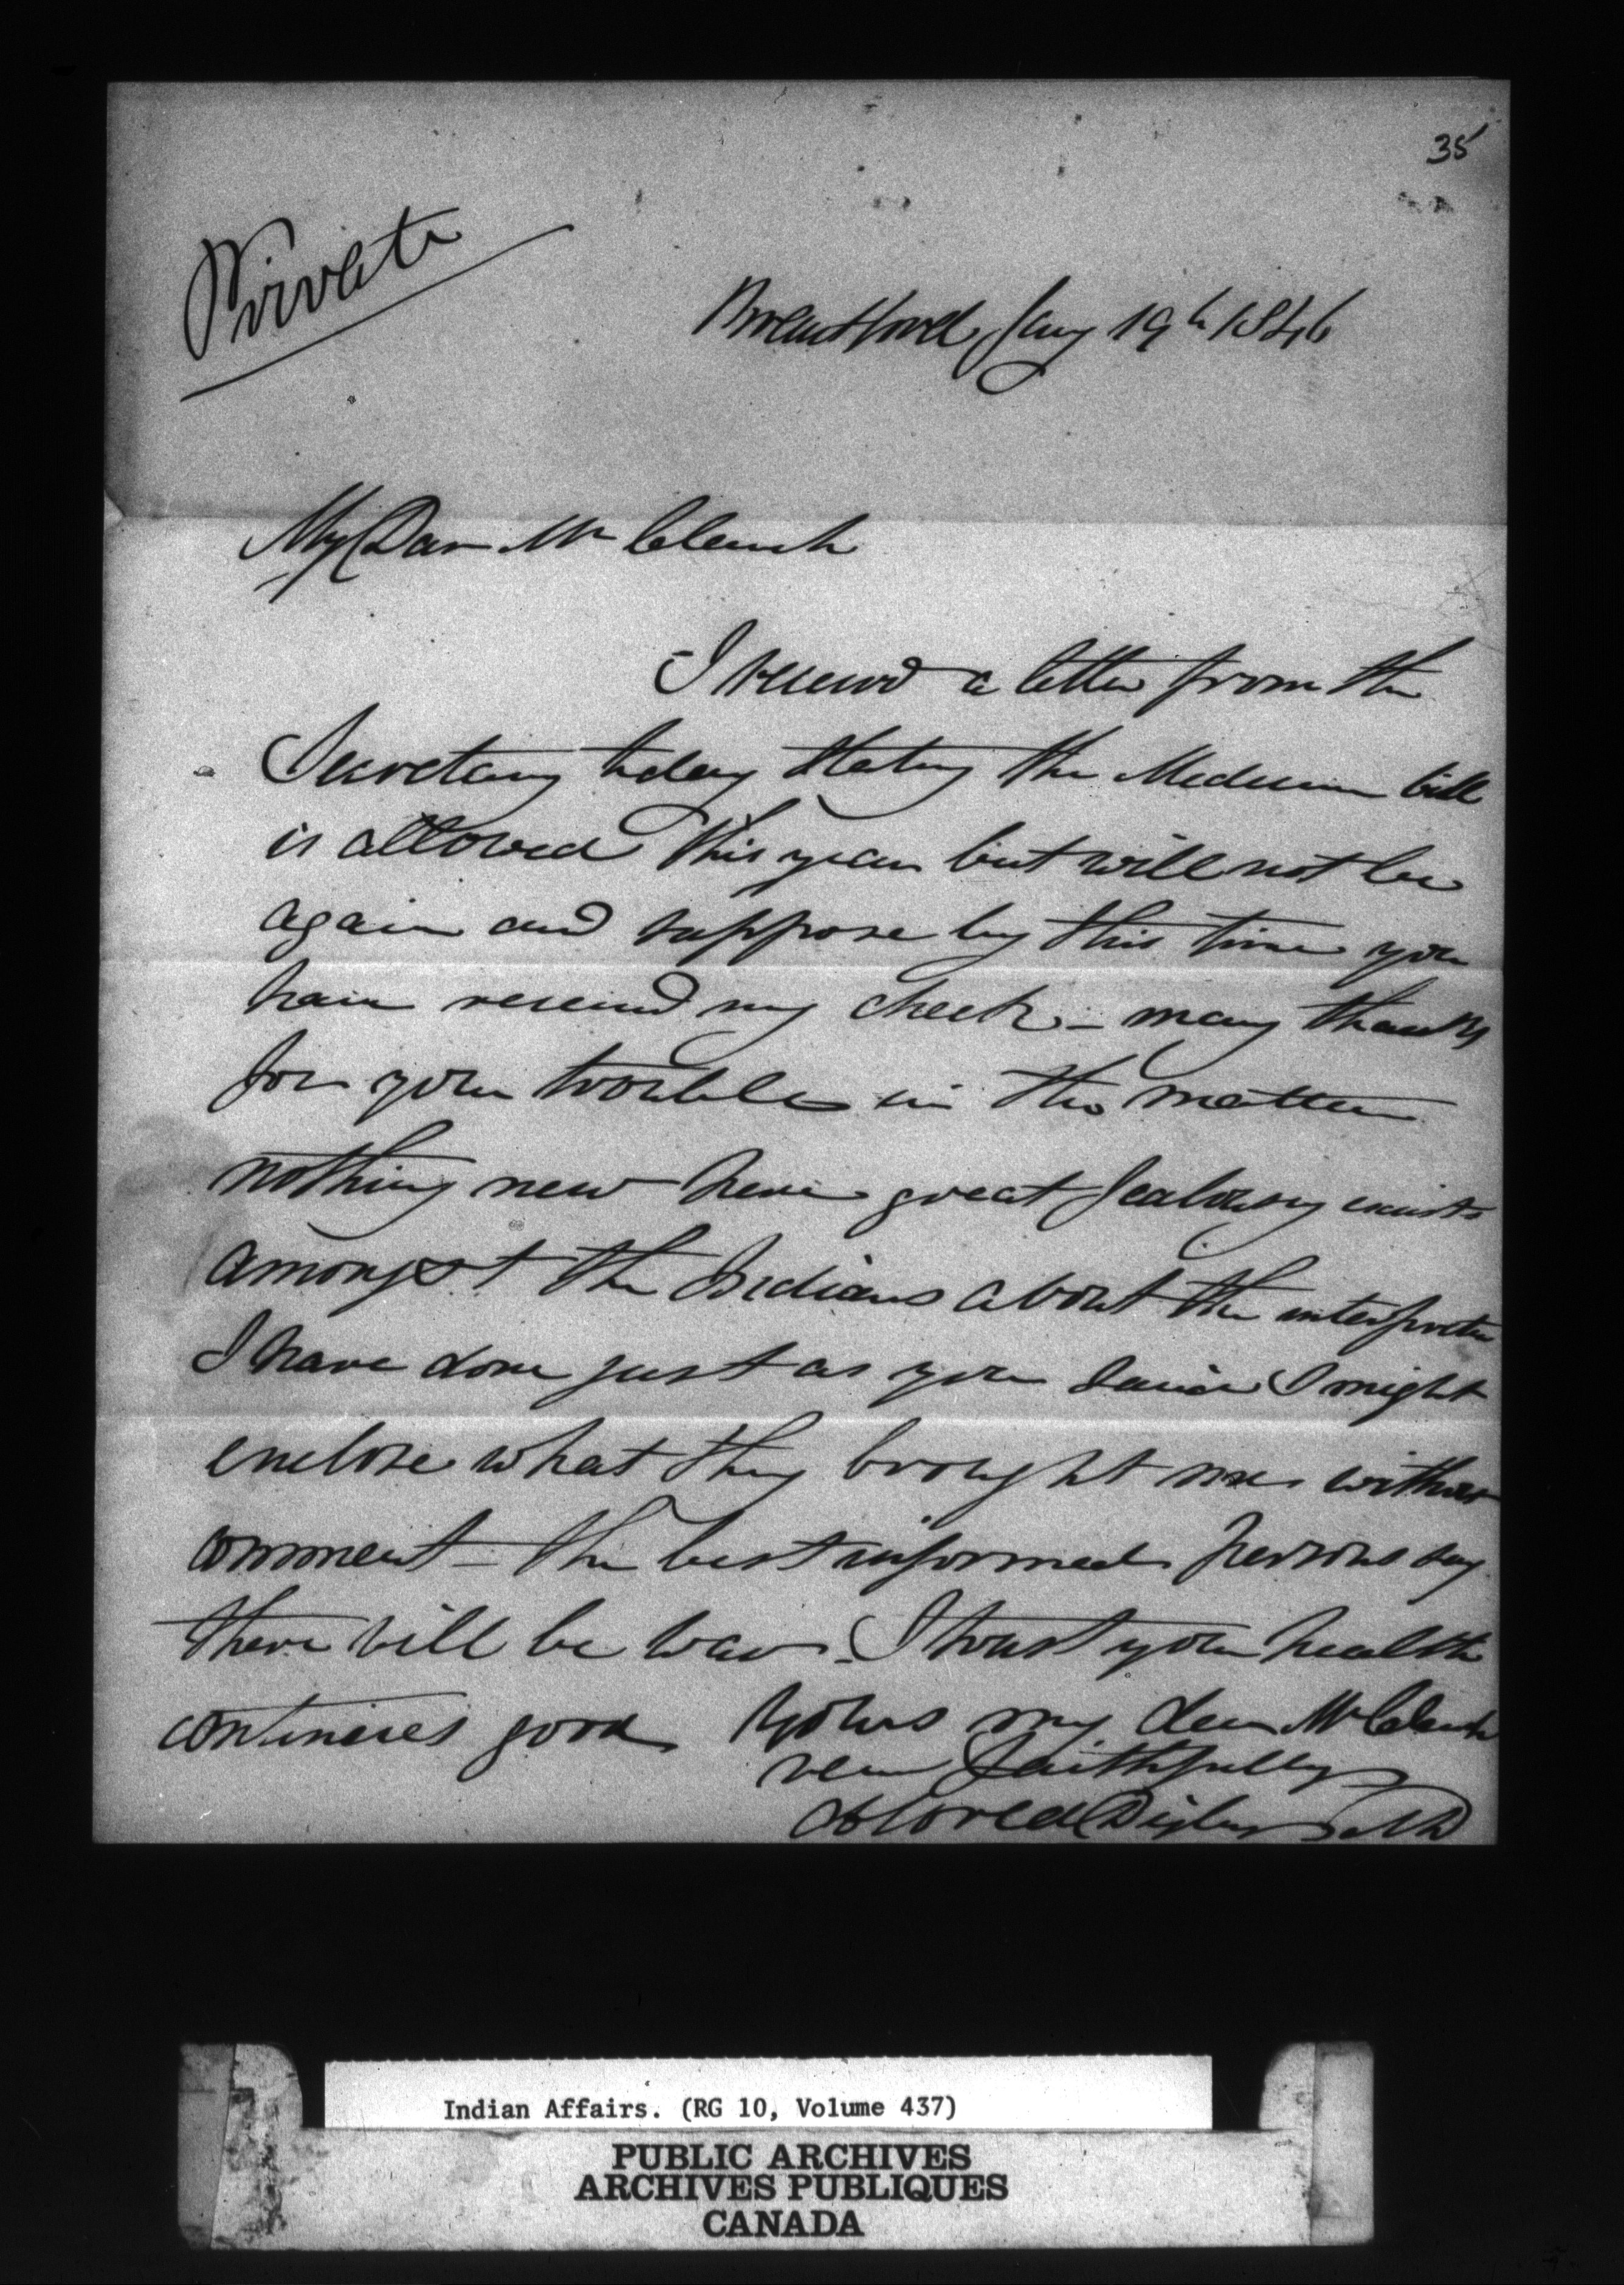 35
Private
Brantford Jany 19th 1846
My Dear Mr Clench
I received a letter from the
Secretary today stating the Medicine bill
is allowed this year but will not be
again and suppose by this time you
have received my check - many thanks
for your trouble in the matter
nothing new here great Jealousy exists
amongst the Indians about the interpreter
I have done just as you said I might
enclose what they brought me without
comment - the best informed persons say
there will be war - I trust your health
continues good Yours my dear Mr Clench
very faithfully
Alfred Digby MD
Indian Affairs. (RG 10, Volume 437)
PUBLIC ARCHIVES
ARCHIVES PUBLIQUES
CANADA